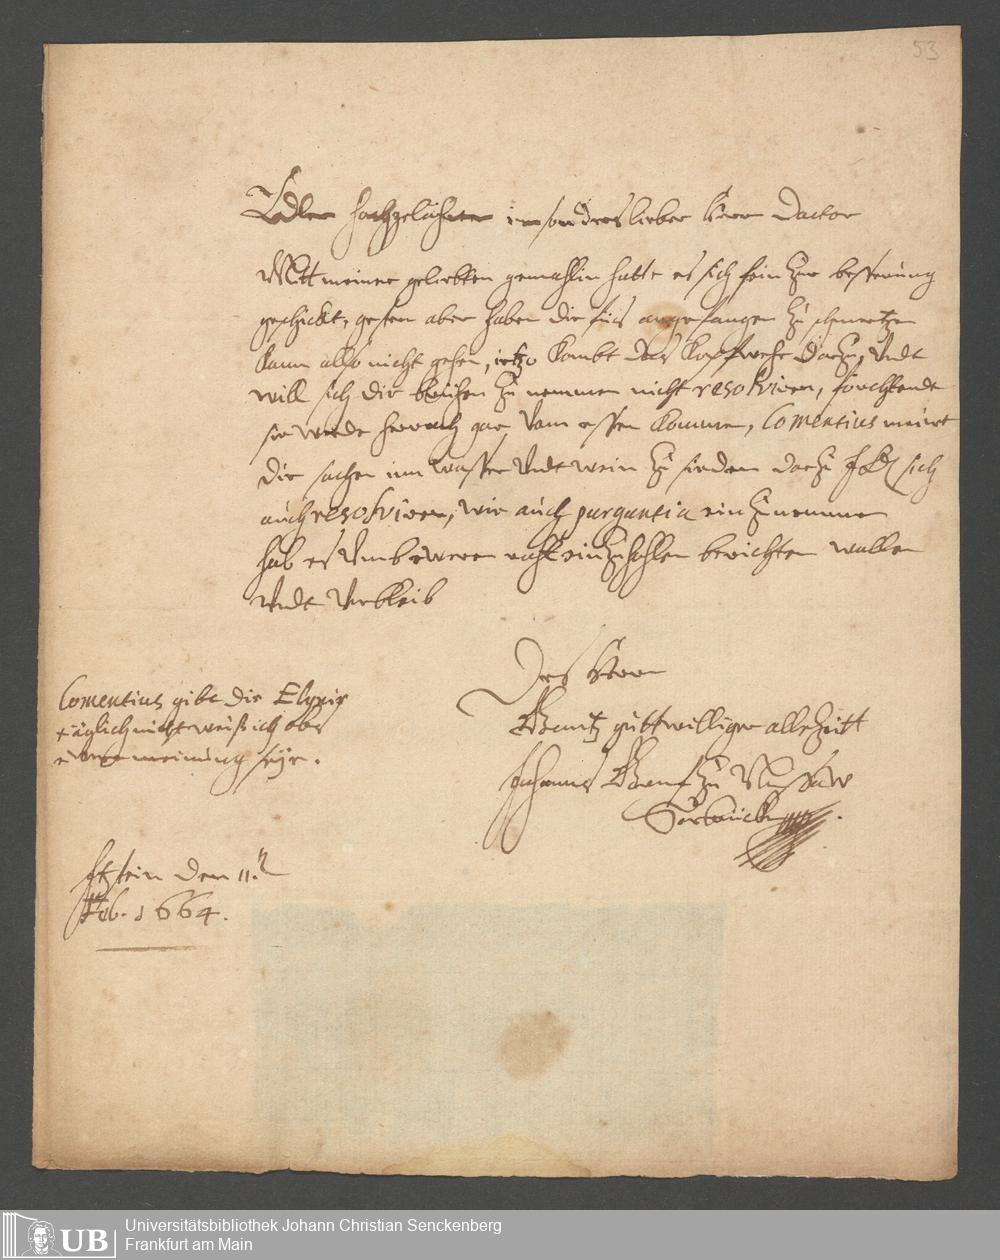 53
Edler hochgelährter insondreslieber Herr Doctor
Mitt meiner geliebten gemahlin hatte es sich fein zur besserung
geschickt, gestern aber haben die füs angefangen zu schmertzen
kann also nicht gehen, ietzo kombt das kopfwehe darzu, undt
will sich die brühen zu nemmen nicht resolviren, förchtende
sie werde hernach gar vom essen kommen, Comentius meint
die sachen inn wasser undt wein zu sieden darzu sie sich
auch resolviren, wie auch purgantia ein zu nemmen
hab es umb ewern raht einzuhohlen berichten wollen
undt verbleib
Des Herrn
Gantz guttwilliger allezeitt
Johannes Graf zu Nassaw
Sarbrücken
Comentius gibt die Elyxir
täglich nicht weiß ich obs
ewre meinung seye.
Itzstein den 11.
Feb. 1664.
UB
Universitätsbibliothek Johann Christian Senckenberg
Frankfurt am Main